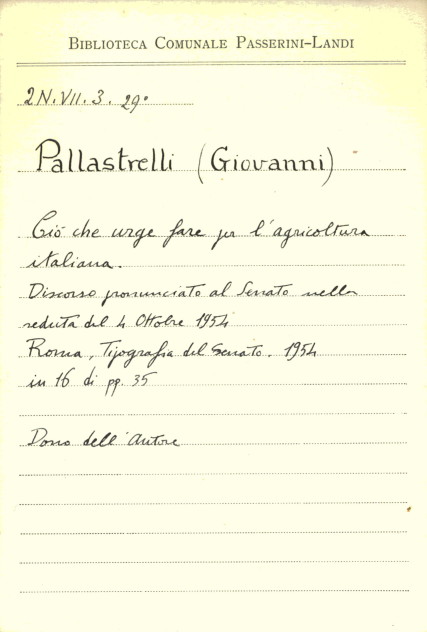 BIBLIOTECA COMUNALE PASSERINI-LANDI
2N.VII.3.29°
Pallastrelli (Giovanni)
Ciò che urge fare per l'agricoltura
italiana.
Discorso pronunciato al Senato nella
seduta del 4 Ottobre 1954
Roma, Tipografia del Senato. 1954
in 16 di pp. 35
Dono dell'Autore